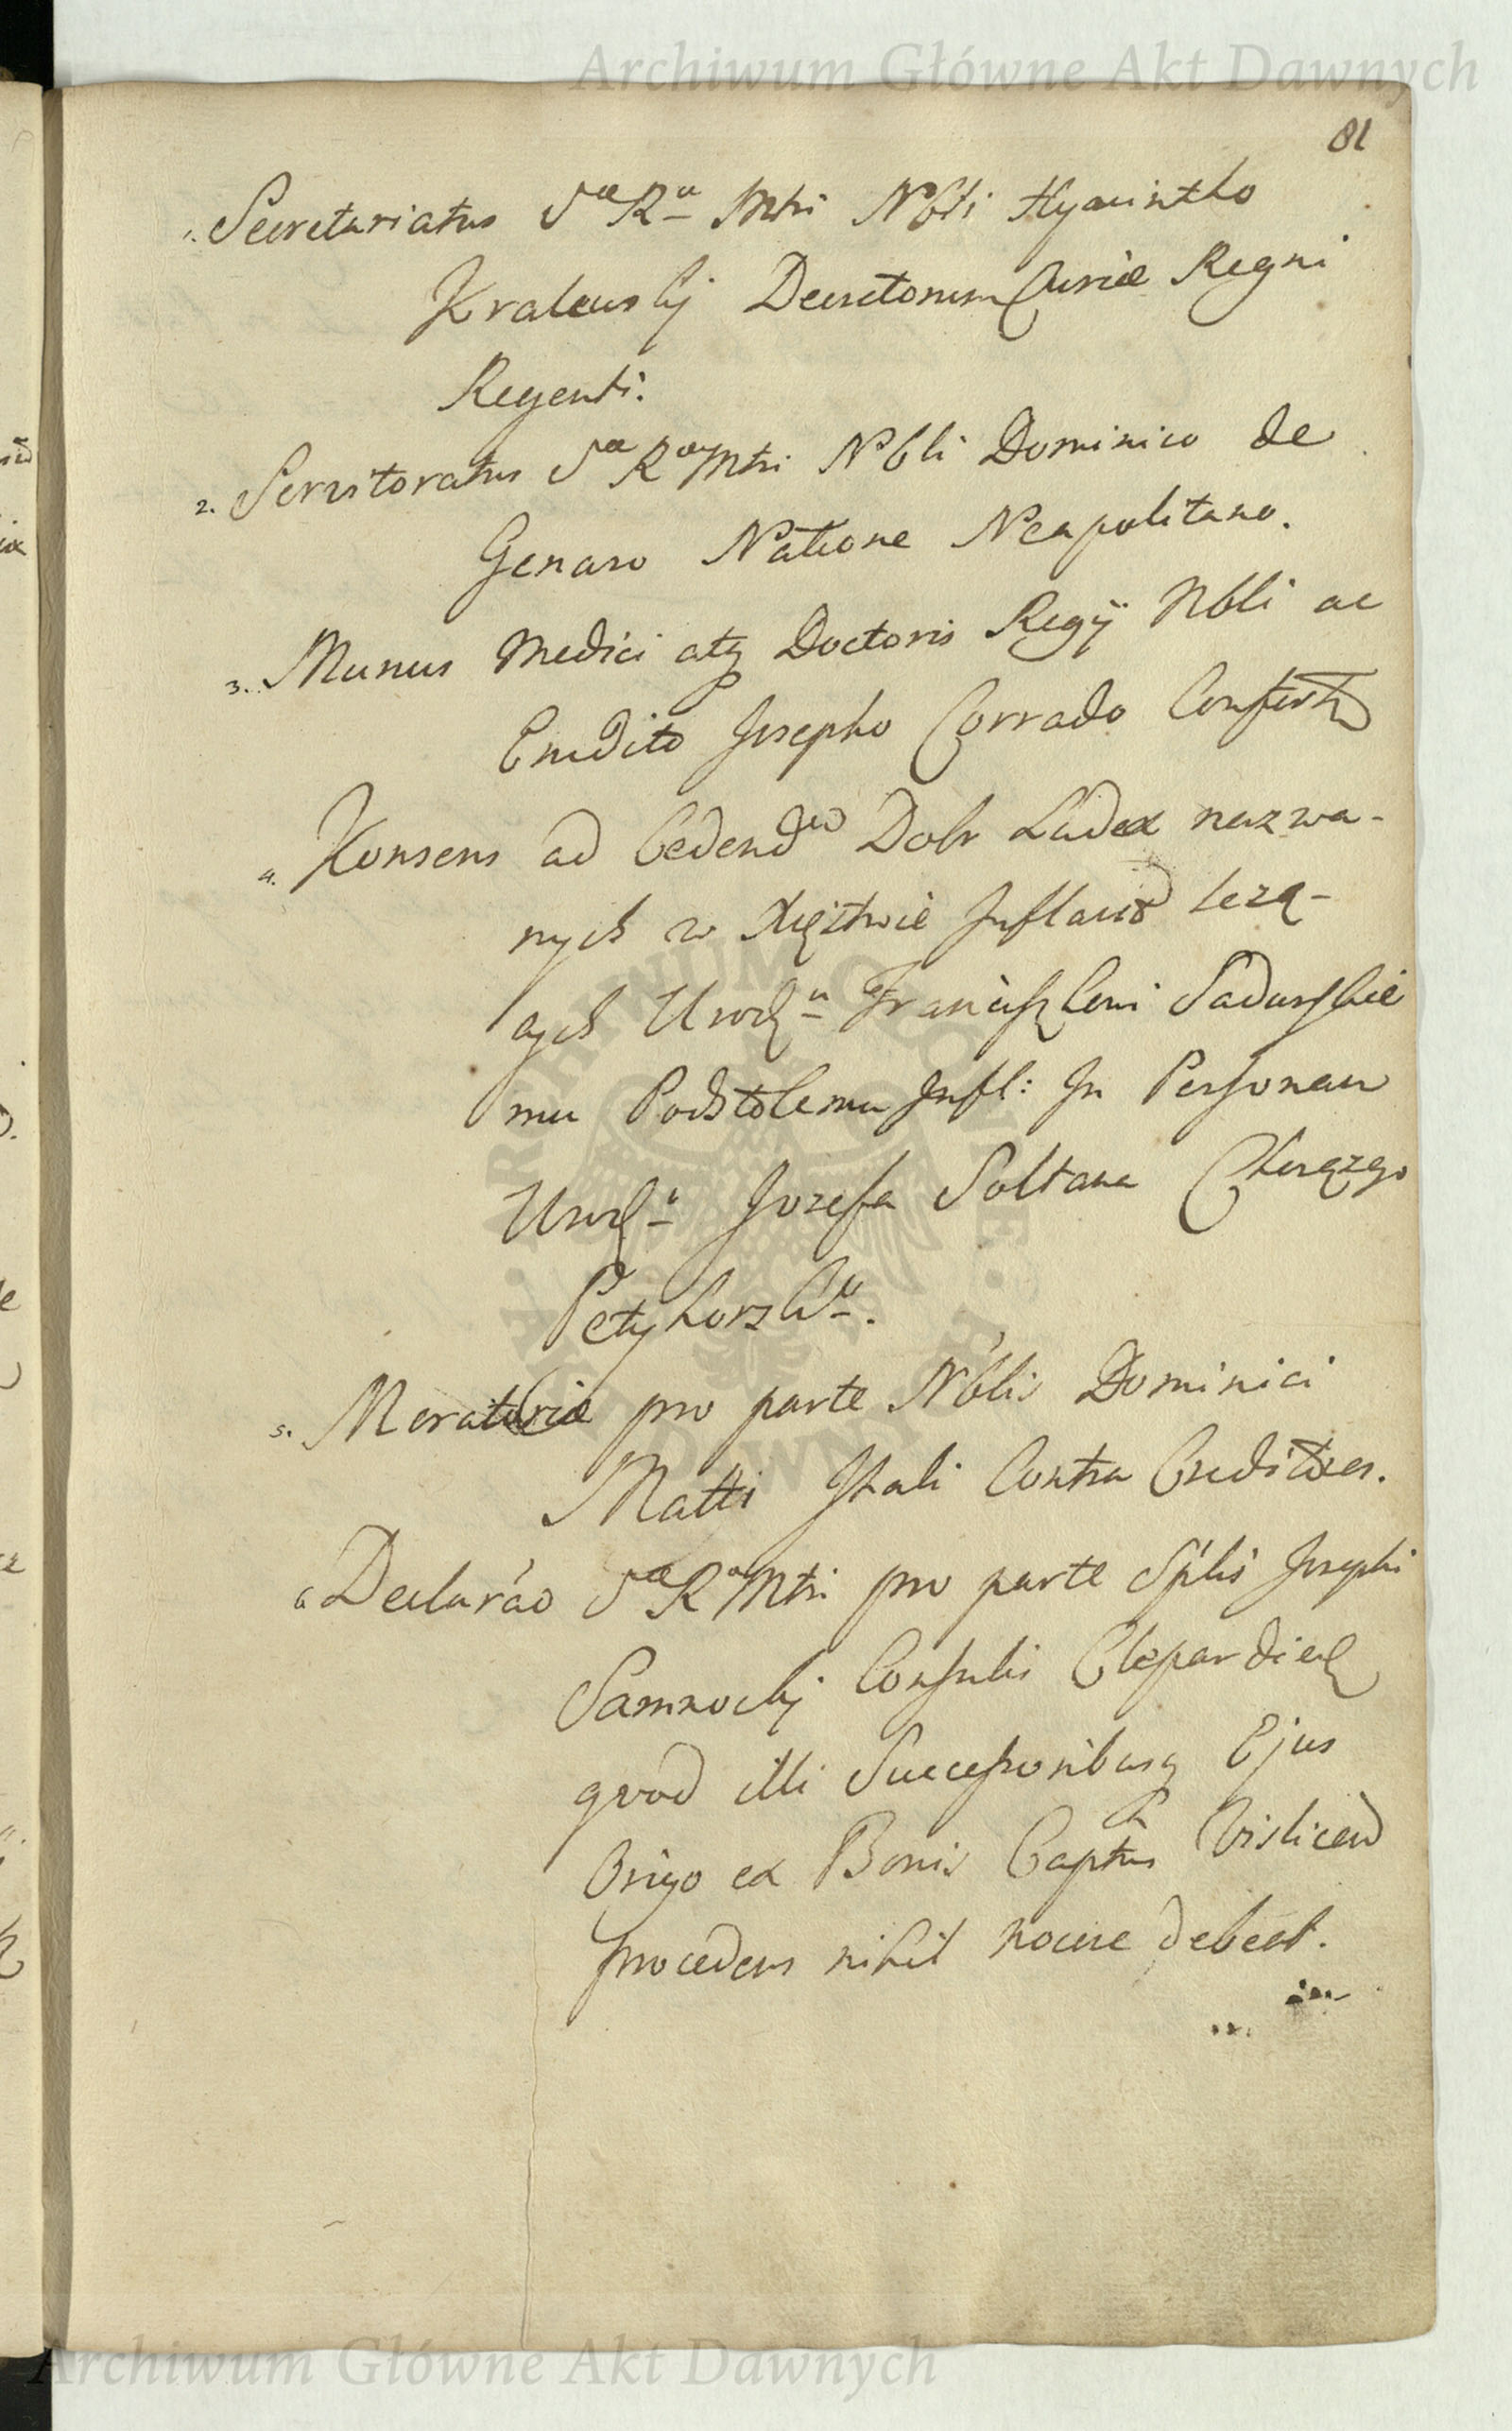 Archiwum Główne Akt Dawnych
81
1. Secretariatus Sae Rae Mtti Nbli Hyacintho
Kralewskj Decretorum Curiæ Regni
Regenti.
2. Servitoratus Sae Rae Mtti Nbli Dominico de
Genaro Natione Neapolitano.
3. Munus Medici atq Doctoris Regÿ Nbli ac
Erudito Josepho Corrado
4. Konsens ad Cedendu Dobr nazwa-
nych w Xięstwie leżą-
cych Urodu Franciszkowi Sadurskie
mu Podstolemu Infl: In Personam
Urodu Jozefa Soltana Chorążego
Petyhorsku.
5. Moratoriæ pro parte Nblis Dominici
Matti Itali Contra Creditores.
6 Declarão Sae Rae Mtti pro parte Splis Josephi
Samnockj Consulis Cleparдien
quod illi Successoribusq Ejus
Origo ex Bonis Captus Vislicen
procedens nihil nocere debeat.
ARCHIWUM GŁÓWNE · AKT DAWNYCH ·
Archiwum Główne Akt Dawnych